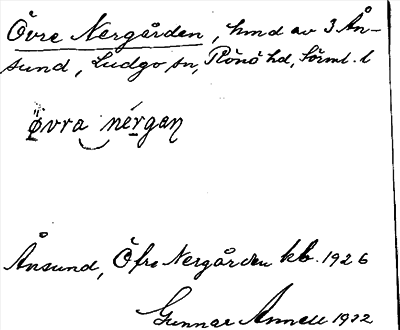 Övre Nergården, hmd av 3 Ån-
sund, Ludgo sn, Rönö hd, Sörml. l
övra nérgan
Ånsund, Öfre Nergården kb. 1926
Gunnar Annell 1932